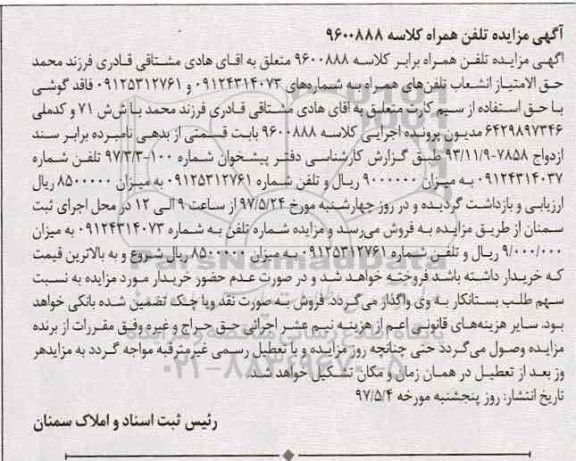 آگهی مزایده تلفن همراه کلاسه ۹۶۰۰۸۸۸
اگهی مزایده تلفن همراه برابر کلاسه ۹۶۰۰۸۸۸ متعلق به اقای هادی مشتاقی قادری فرزند محمد
حق الامتیاز انشعاب تلفن‌های همراه به شماره‌های ۰۹۱۲۴۳۱۴۰۷۳ و ۰۹۱۲۵۳۱۲۷۶۱ فاقد گوشی
با حق استفاده از سیم کارت متعلق به اقای هادی مشتاقی قادری فرزند محمد با ش‌ش ۷۱ و کدملی
۶۴۲۹۸۹۷۳۴۶ مدیون پرونده اجرایی کلاسه ۹۶۰۰۸۸۸ بابت قسمتی از بدهی نامبرده برابر سند
ازدواج ۷۸۵۸-۹۳/۱۱/۹ طبق گزارش کارشناسی دفتر پیشخوان شماره ۱۰۰-۹۷/۳/۳ تلفن شماره
۰۹۱۲۴۳۱۴۰۳۷ به میزان ۹۰۰۰۰۰۰ ریال و تلفن شماره ۰۹۱۲۵۳۱۲۷۶۱ به میزان ۸۵۰۰۰۰۰ ریال
ارزیابی و بازداشت گردیده و در روز چهارشنبه مورخ ۹۷/۵/۲۴ از ساعت ۹ الی ۱۲ در محل اجرای ثبت
سمنان از طریق مزایده به فروش می‌رسد و مزایده شماره تلفن به شماره ۰۹۱۲۴۳۱۴۰۷۳ به میزان
۹/۰۰۰/۰۰۰ ریال و تلفن شماره ۰۹۱۲۵۳۱۲۷۶۱ به میزان ۸۵۰۰۰۰۰ ریال شروع و به بالاترین قیمت
که خریدار داشته باشد فروخته خواهد شد و در صورت عدم حضور خریدار مورد مزایده به نسبت
سهم طلب بستانکار به وی واگذار می‌گردد. فروش به صورت نقد ویا چک تضمین شده بانکی خواهد
بود. سایر هزینه‌های قانونی اعم از هزینه نیم عشر اجرائی حق حراج و غیره وفق مقررات از برنده
مزایده وصول می‌گردد حتی چنانچه روز مزایده و یا تعطیل رسمی غیرمترقبه مواجه گردد به مزایدهر
وز بعد از تعطیل در همان زمان و مکان تشکیل خواهد شد.
تاریخ انتشار: روز پنجشنبه مورخه ۹۷/۵/۴
رئیس ثبت اسناد و املاک سمنان